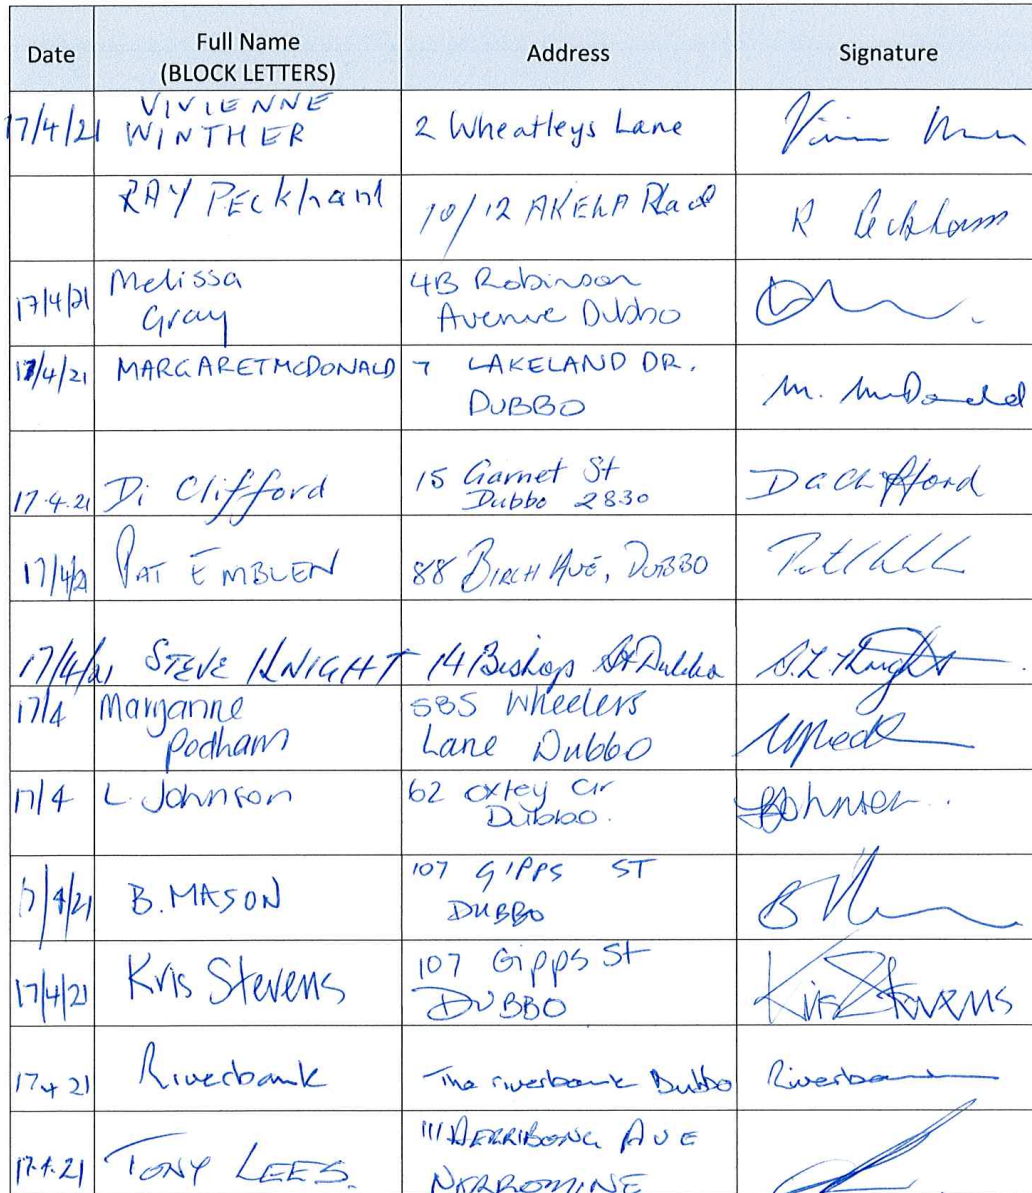 Date Full Name Address Signature
(BLOCK LETTERS)
17/4/21 VIVIENNE
WINTHER 2 Wheatleys Lane
RAY PECkham 10/12 AKELA Place R Peckham
17/4/21 Melissa
Gray 4B Robinson
Avenue Dubbo
17/4/21 MARGARET McDONALD 7 LAKELAND DR.
DUBBO M. McDonald
17.4.21 Di Clifford 15 Garnet St
Dubbo 2830 Clifford
17/4/21 PAT EMBLEN 88 BIRCH AVE, DUBBO
17/4/21 STEVE KNIGHT 14 Bishop St Dubbo S.L. Knight
17/4 Maryanne
Podham 585 Wheelers
Lane Dubbo
17/4 L. Johnson 62 Oxley Cir
Dubbo. Johnson
17/4/21 B. MASON 107 GIPPS ST
DUBBO
17/4/21 Kris Stevens 107 Gipps St
DUBBO Kris Stevens
17 4 21 Riverbank The riverbank Dubbo Riverbank
17.4.21 TONY LEES. DERRIBONG AVE
NARROMINE